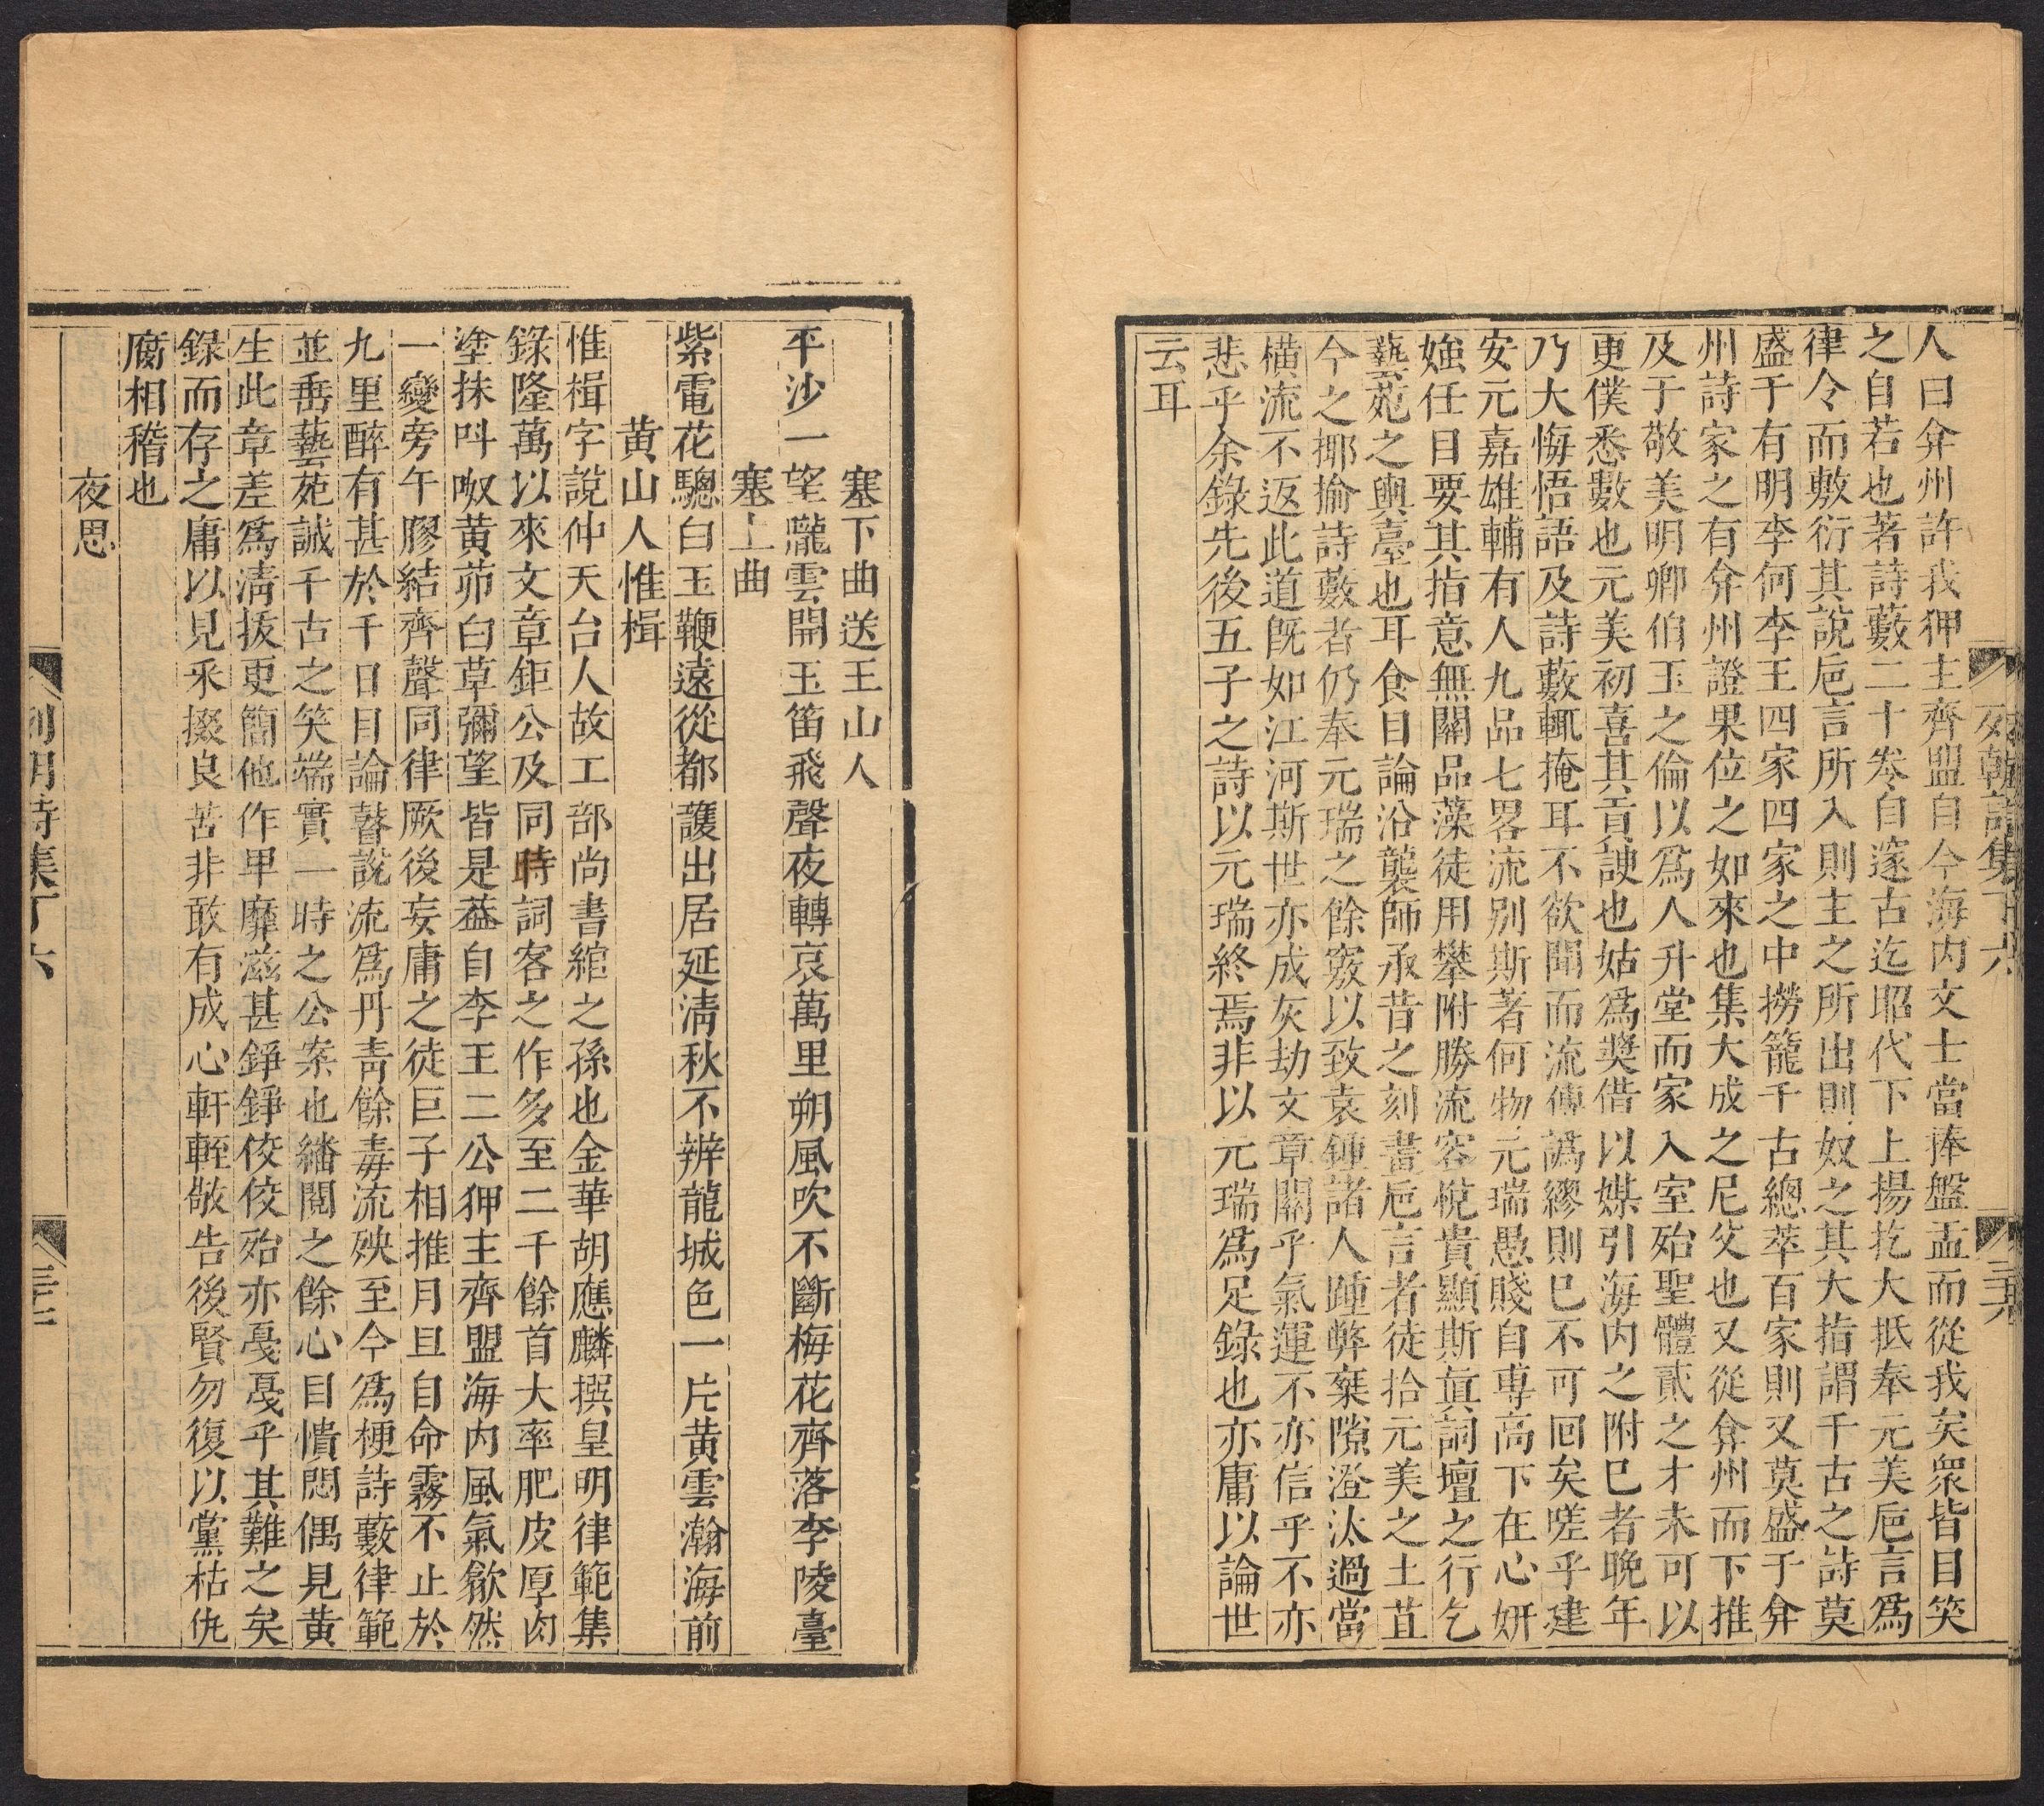 人曰弇州許我狎主齊盟自今海内文士當捧盤盂而從我矣衆皆目笑
之自若也著詩藪二十卷自邃古迄昭代下上揚扢大抵奉元美巵言爲
律令而敷衍其說巵言所入則主之所出則奴之其大指謂千古之詩莫
盛于有明李何李王四家四家之中撈籠千古總萃百家則又莫盛于弇
州詩家之有弇州證果位之如來也集大成之尼父也又從弇州而下推
及于敬美明卿伯玉之倫以爲人升堂而家入室殆聖體貳之才未可以
更僕悉數也元美初喜其貢諛也姑爲奬借以媒引海内之附巳者晚年
乃大悔悟語及詩藪輒掩耳不欲聞而流傳譌繆則巳不可回矣嗟乎建
安元嘉雄輔有人九品七畧流别斯著何物元瑞愚賤自專高下在心妍
媸任目要其指意無關品藻徒用攀附勝流容悅貴顯斯眞詞壇之行乞
藝苑之輿臺也耳食目論沿襲師承昔之刻畫巵言者徒拾元美之土苴
今之揶揄詩藪者仍奉元瑞之餘竅以致袁鍾諸人踵弊棄隙澄汰過當
橫流不返此道旣如江河斯世亦成灰劫文章關乎氣運不亦信乎不亦
悲乎余錄先後五子之詩以元瑞終焉非以元瑞爲足錄也亦庸以論世
云耳
列朝詩集丁六
塞下曲送王山人
平沙一望隴雲開玉笛飛聲夜轉哀萬里朔風吹不斷梅花齊落李陵臺
塞上曲
紫電花驄白玉鞭遠從都護出居延淸秋不辨龍城色一片黄雲瀚海前
黄山人惟楫
惟楫字說仲天台人故工部尚書綰之孫也金華胡應麟撰皇明律範集
錄隆萬以來文章鉅公及同時詞客之作多至二千餘首大率肥皮厚肉
塗抹呌呶黄茆白草彌望皆是葢自李王二公狎主齊盟海内風氣歙然
一變旁午膠結齊聲同律厥後妄庸之徒巨子相推月旦自命霧不止於
九里醉有甚於千日目論瞽說流爲丹靑餘毒流殃至今爲梗詩藪律範
並垂藝苑誠千古之笑端實一時之公案也繙閱之餘心目憒悶偶見黄
生此章差爲淸拔更簡他作卑靡滋甚錚錚佼佼殆亦戞戞乎其難之矣
錄而存之庸以見釆掇良苦非敢有成心軒輊敬告後賢勿復以黨枯仇
腐相稽也
夜思
列朝詩集丁六